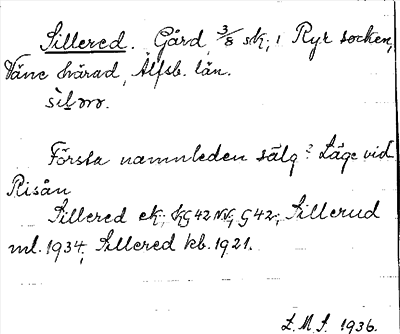 Sillered. Gård, 3/8 sk; i Ryr socken,
Väne härad, Älfsb. län.
Första namnleden sälg? Läge vid
Risån
Sillered ek; G42; Sillerud
ml. 1934; Sillered kb. 1921.
L.M.S. 1936.